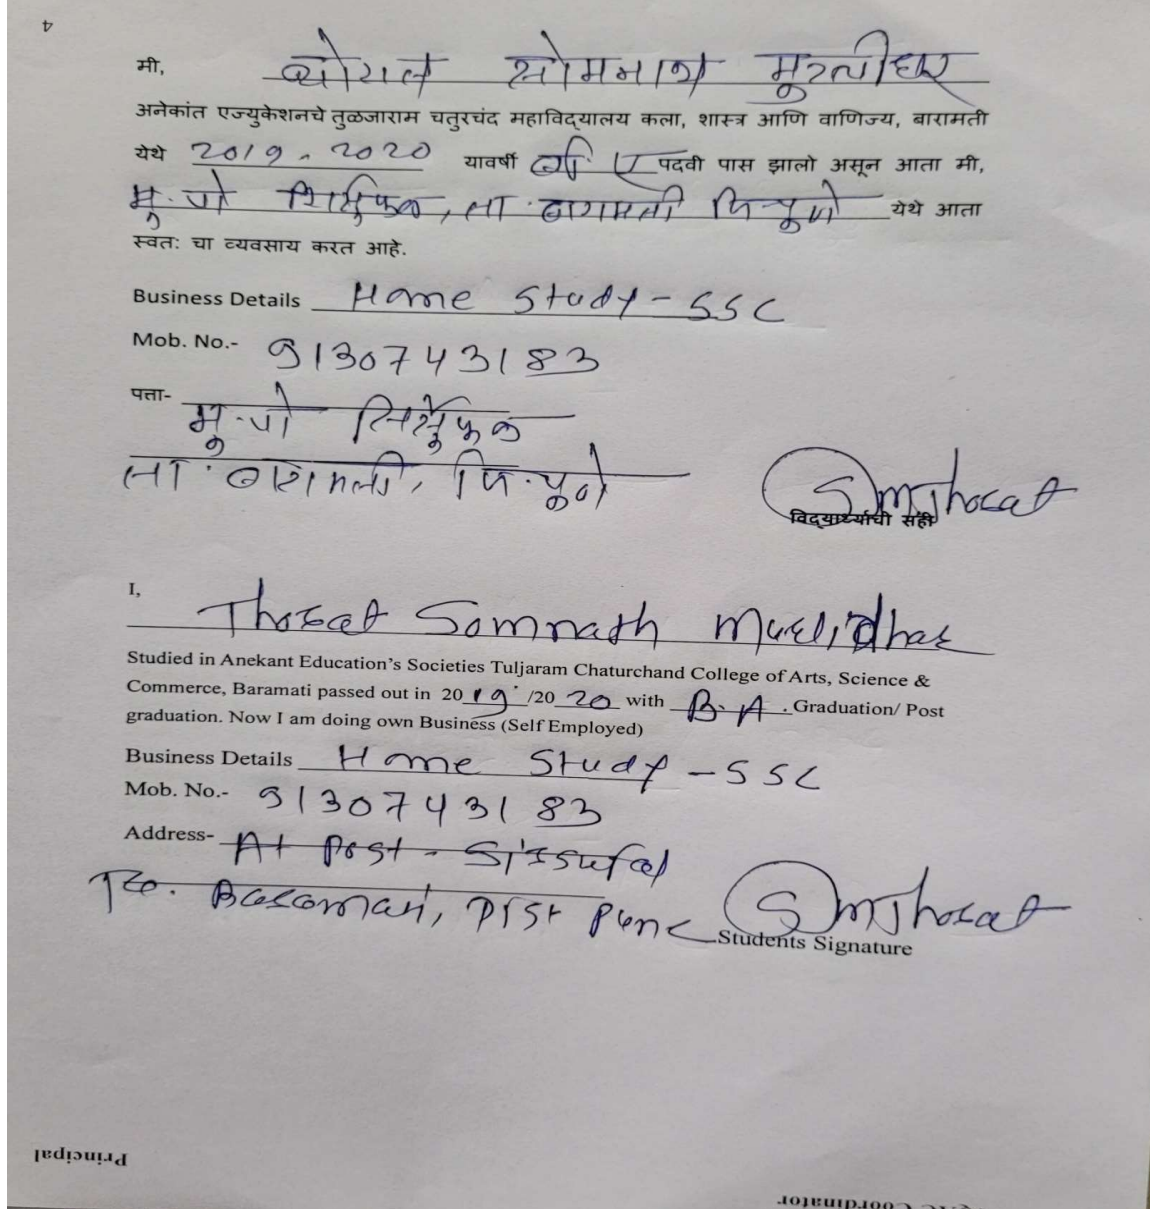 4
मी, थोरात सोमनाथ मुरलीधर
अनेकांत एज्युकेशनचे तुळजाराम चतुरचंद महाविद्यालय कला, शास्त्र आणि वाणिज्य, बारामती
येथे 2019-2020 यावर्षी बी. ए पदवी पास झालो असून आता मी,
मु.पो शिर्सुफळ, ता. बारामती जि.पुणे येथे आता
स्वत: चा व्यवसाय करत आहे.
Business Details Home Study - SSC
Mob. No.- 9130743183
पत्ता- मु.पो शिर्सुफळ
ता. बारामती, जि.पुणे
SmThorat
विद्यार्थ्याची सही
I, Thorat Somnath Murlidhar
Studied in Anekant Education's Societies Tuljaram Chaturchand College of Arts, Science &
Commerce, Baramati passed out in 2019 /2020 with B.A. Graduation/ Post
graduation. Now I am doing own Business (Self Employed)
Business Details Home Study - SSC
Mob. No.- 9130743183
Address- At Post - Sirsufal
Baramati, Dist Pune
SmThorat
Students Signature
Principal
Coordinator